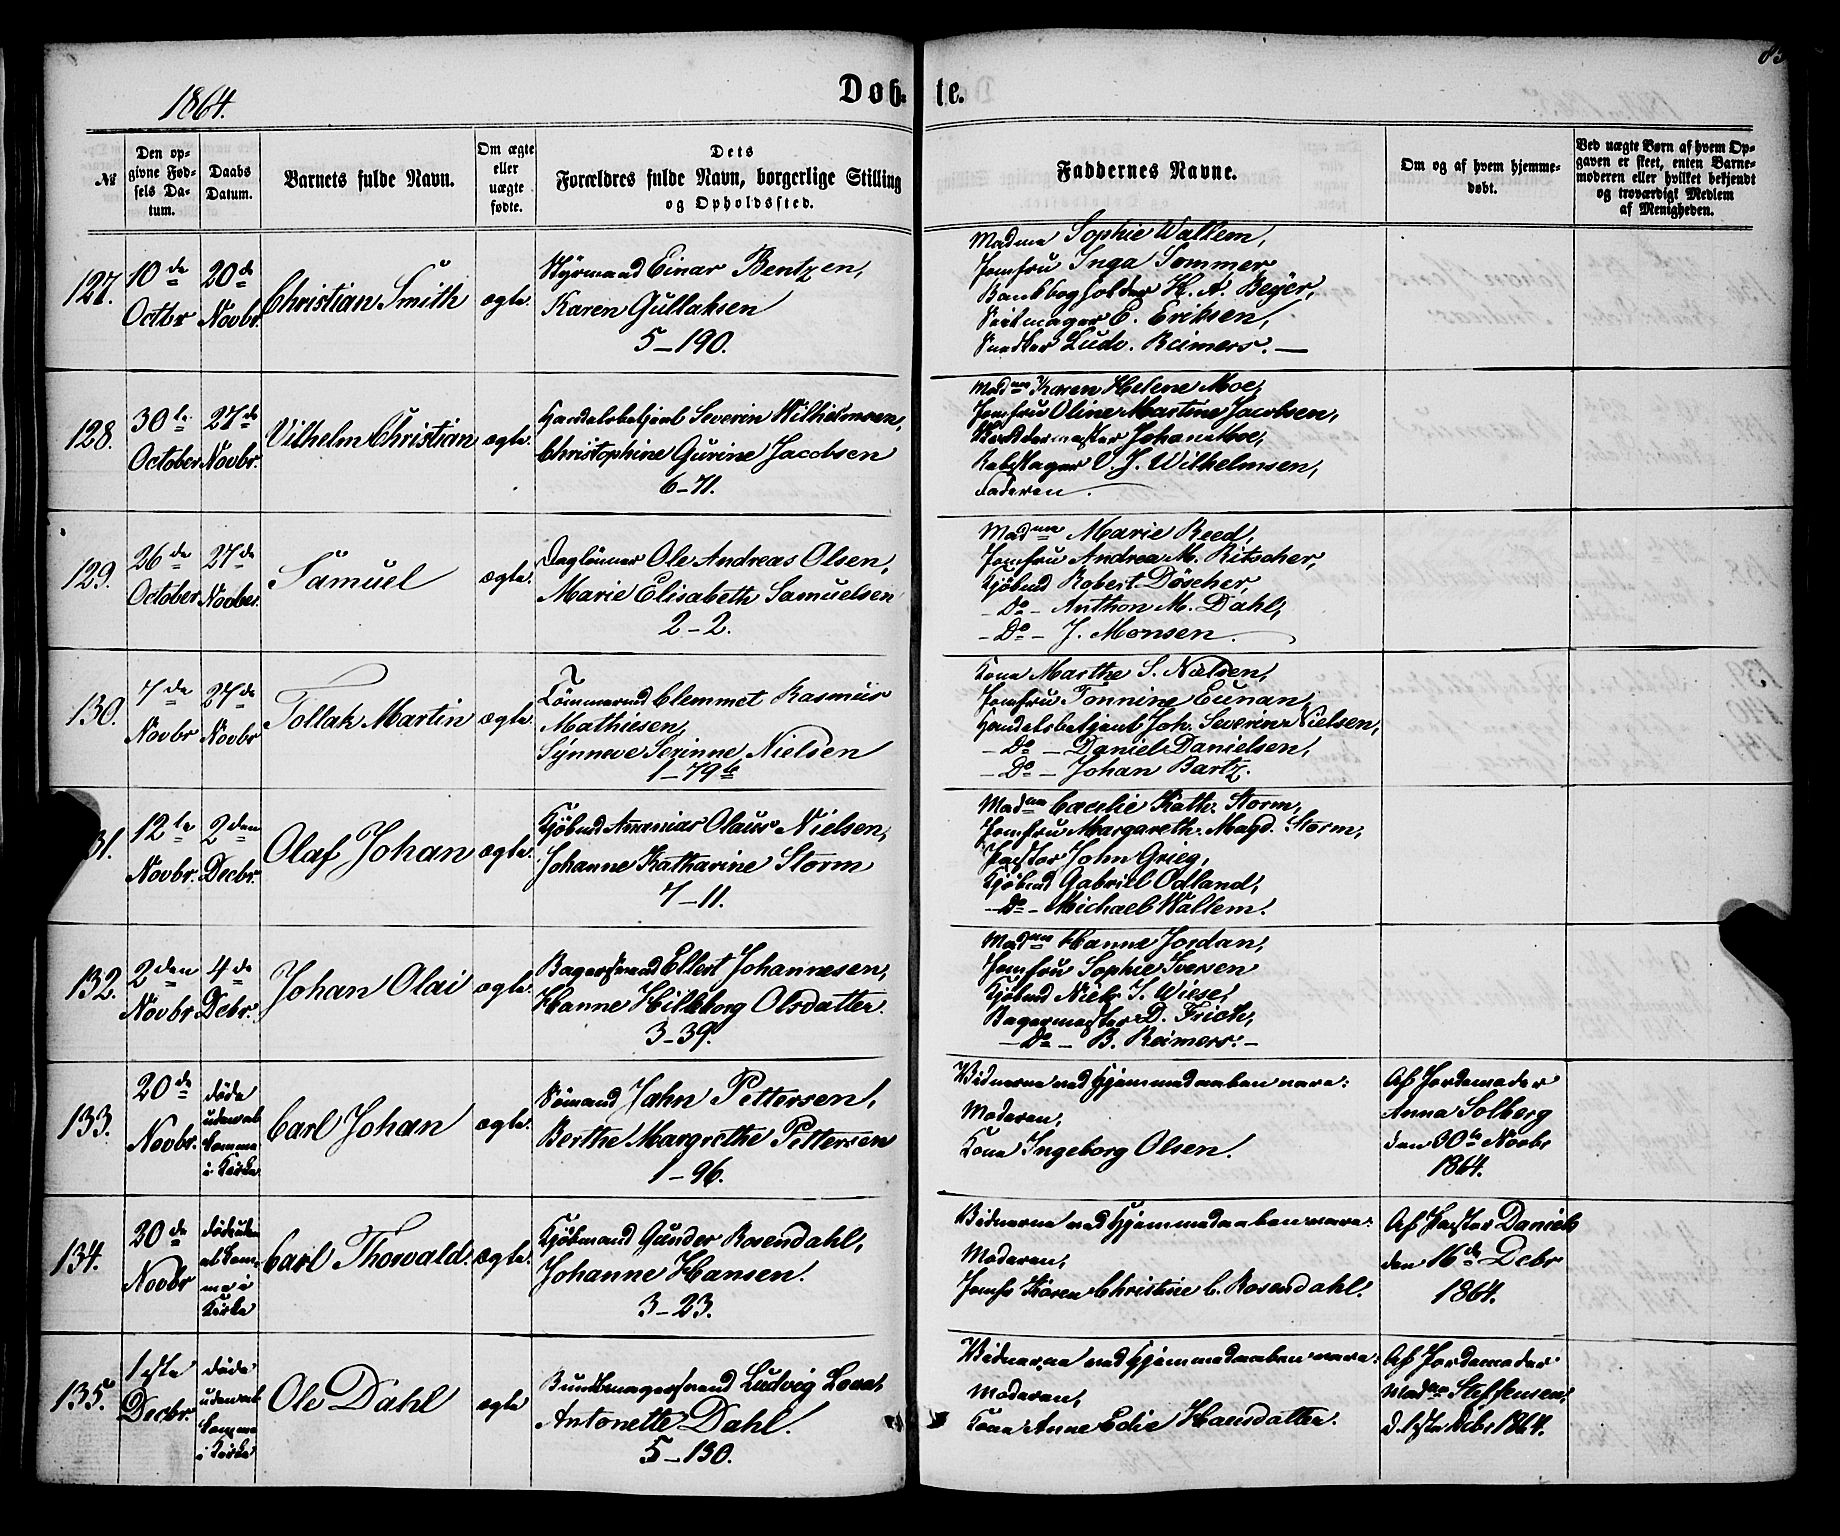 1864.
Døb-te.
83
№
Den opgivne Fødsels Datum.
Daabs Datum.
Barnets fulde Navn.
Om ægte eller uægte fødte.
Dets Forældres fulde Navn, borgerlige Stilling og Opholdssted.
Faddernes Navne.
Om og af hvem hjemmedøbt.
Ved uægte Børn af hvem Opgaven er skeet, enten Barnemoderen eller hvilket bekjendt og troværdigt Medlem af Menigheden.
127.
10de Octbr
20de Novbr.
Christian Smith
ægte.
Styrmand Einar Bentzen,
Karen Gullaksen
5–190.
Madme Sophie Wallem,
Jomfru Inga Sommer
Bankbogholder H. A. Beyer,
Seilmager E. Eriksen,
Snedker Ludv. Reimers. —
128.
30te October
27de Novbr.
Vilhelm Christian
ægte.
Handelsbetjent Severin Wilhelmsen,
Christophine Gurine Jacobsen
6–71.
Madme Karen Helene Moe,
Jomfru Oline Martine Jacobsen,
Johan Moe,
Rebslager O. J. Wilhelmsen,
Faderen.
129.
26de October
27de Novber.
Samuel
ægte.
Daglönner Ole Andreas Olsen,
Marie Elisabeth Samuelsen
2–2.
Madme Marie Reed,
Jomfru Andrea M. Ritscher,
Kjöbmd Robert Döscher,
– Do – Anthon M. Dahl,
– Do – J. Monsen.
130.
7de Novbr
27de Novbr
Tollak Martin
ægte.
Tömmermd Clemmet Rasmus
Mathiesen,
Synneve Serinne Nielsen
1–79b
Kone Marthe S. Nielsen,
Jomfru Tonnine Eunan,
Handelsbetjent Joh. Severin Nielsen,
– Do – Daniel Danielsen,
– Do – Johan Bartz.
31.
12te Novbr.
2den Decbr.
Olaf Johan
ægte.
Kjöbmd Ananias Olaus Nielsen,
Johanne Katharine Storm
7–11.
Madme Cæcilie Kathr. Storm,
Jomfru Margareth. Magd. Storm,
Pastor John Grieg,
Kjöbmd Gabriel Odland,
– Do – Michael Wallem.
132.
2den Novbr
4de Debr.
Johan Olai
ægte.
Bagersvend Ellert Johannesen,
Hanne Hilleborg Olsdatter.
3–39.
Madme Hanne Jordan,
Jomfru Sophie Iversen
Kjöbmd Niels J. Wiese,
Bagermester D. Frich,
– Do – B. Reimers. –
133.
20de Novbr.
døde uden at komme i Kirke
Carl Johan
ægte.
Sömand John Pettersen,
Berthe Margrethe Pettersen
1–96.
Vidnerne ved Hjemmedaaben vare:
Moderen,
Kone Ingeborg Olsen.
Af Jordemoder
Anna Solberg
den 30te Novbr
1864.
134.
20de Novbr
døde uden at komme i Kirke
Carl Thorvald.
ægte.
Kjöbmand Gunder Rosendahl,
Johanne Hansen.
3–23.
Vidnerne ved Hjemmedaaben vare:
Moderen,
Jomfr Karen Christine C. Rosendahl.
Af Pastor Daniels
den 16de Debr
1864.
135.
1ste Decbr.
døde uden at komme i Kirke
Ole Dahl
ægte
Bundtmagersvend Ludvig
Antonette Dahl.
5–130.
Vidnerne ved Hjemmedaaben vare:
Moderen,
Kone Anne Edie Hansdatter.
Af Jordemoder
Madme Steffensen,
d. 1ste Debr 1864.